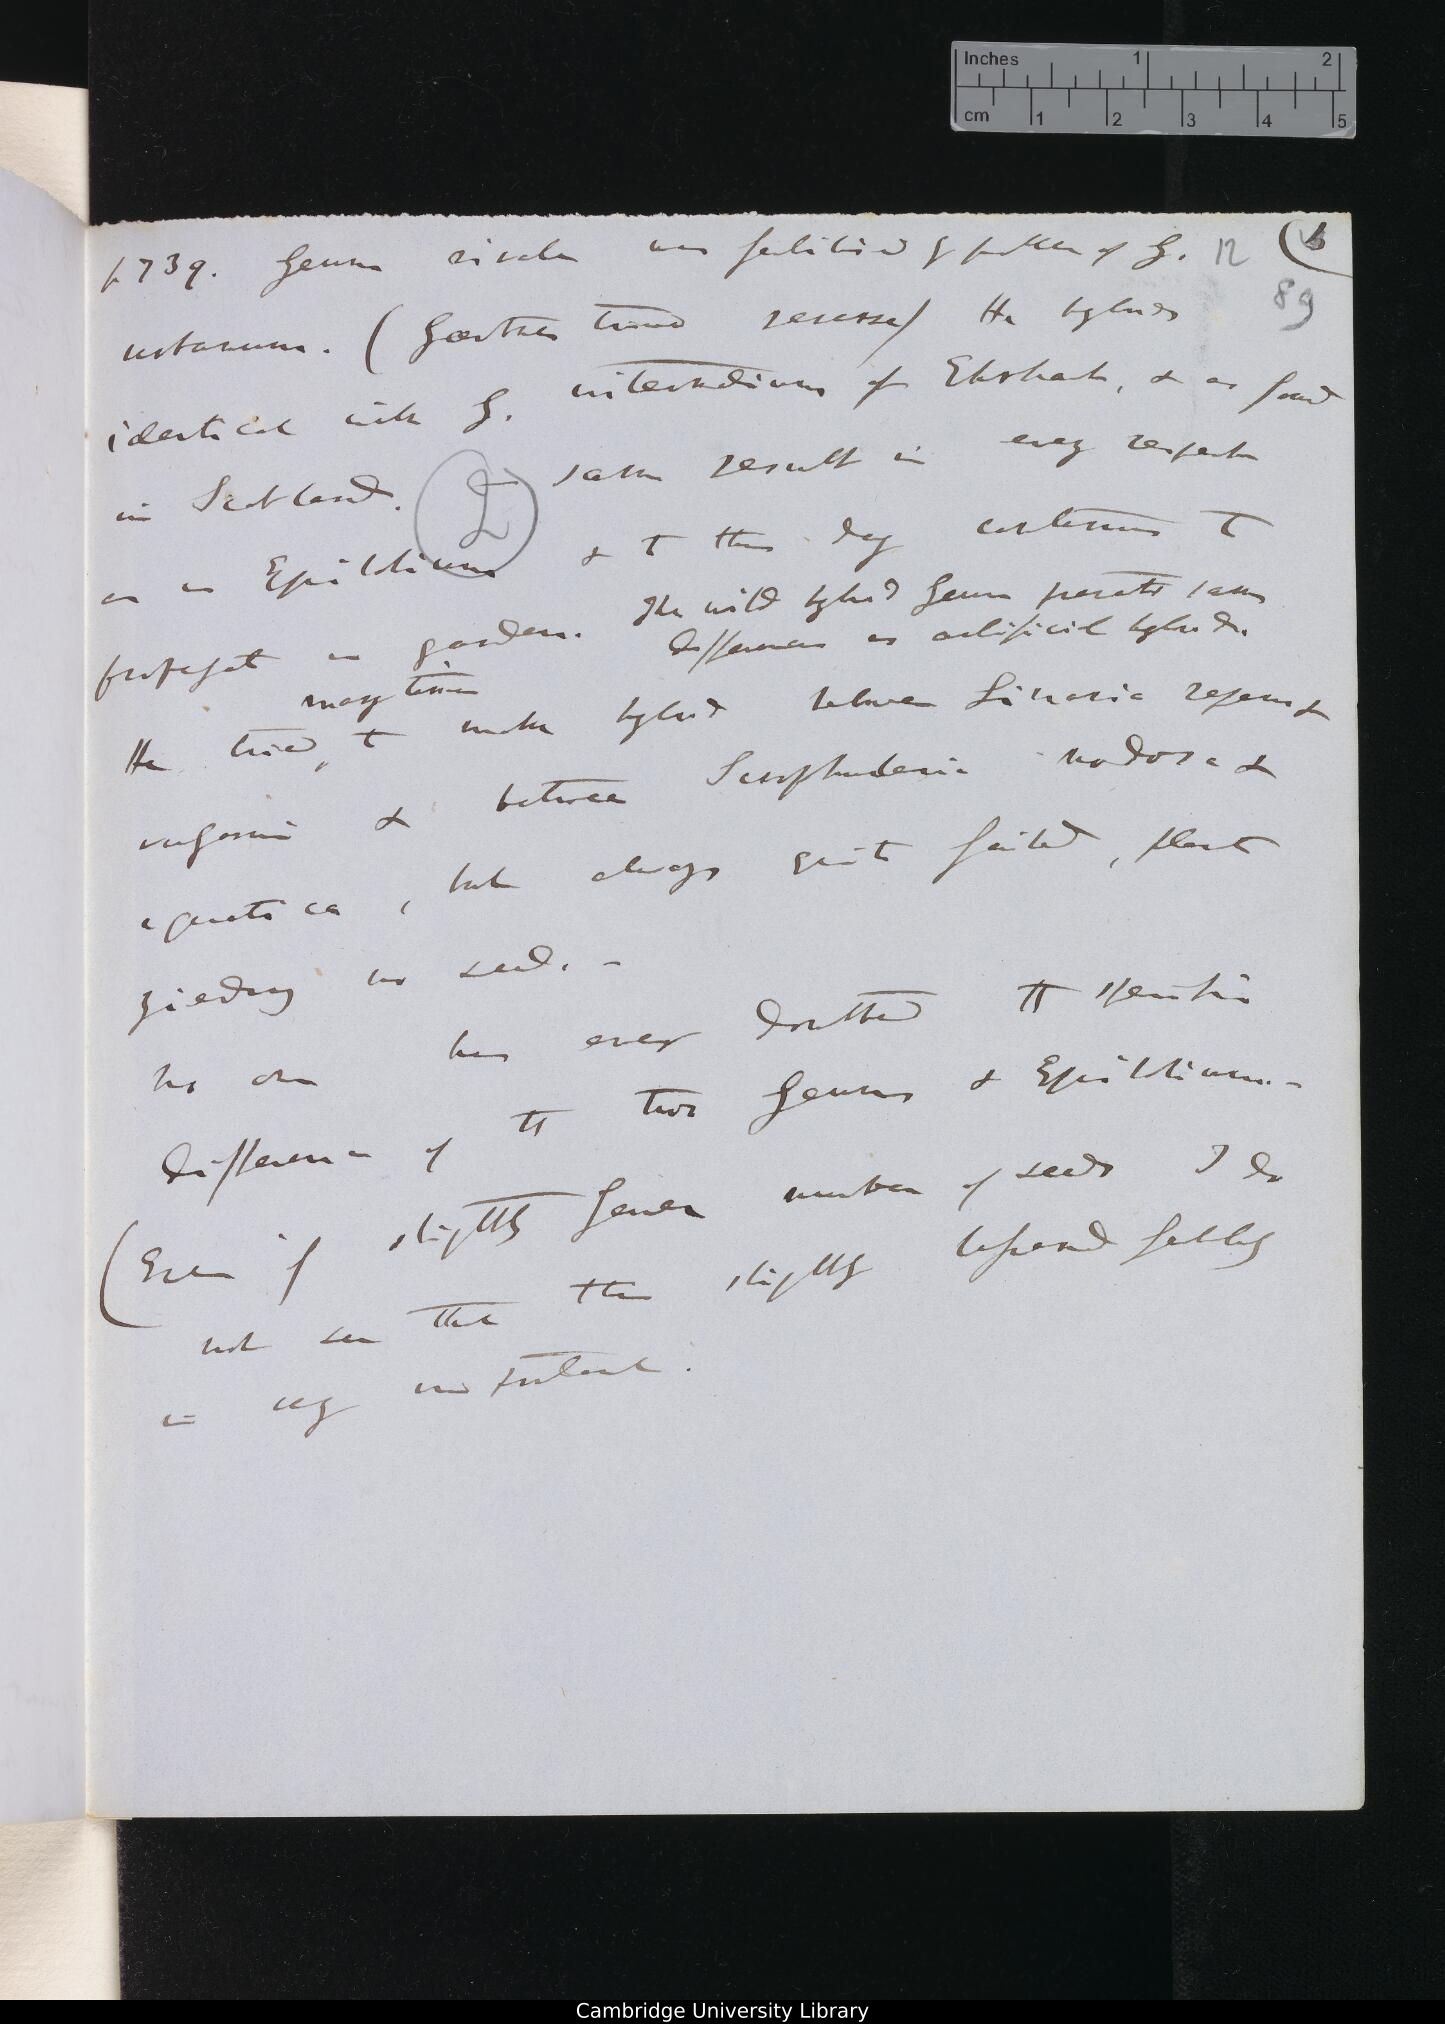 Inches 1 2
cm 1 2 3 4 5
p 739. Geum rivale was fertilised by pollen of G. 12 (6
89
urbanum. (Gærtner tried reverse) The hybrids
identical with G. intermedium of Ehrhart, & as found
in Scotland. same result in every respect
as in Epilobium & to this day continues to
propagate in garden. The wild hybrid Geum presents same
differences as artificial hybrids.
many times
He tried, to make hybrid between Linaria repens &
vulgaris & between Scrophularia nodosa &
aquatica, but always quite failed, plants
yielding no seed. –
No one has ever doubted the specific
difference of the two Geums & Epilobium. –
(Even if slightly fewer number of seeds I do
not see that this slightly lessened fertility
is very important.
Cambridge University Library